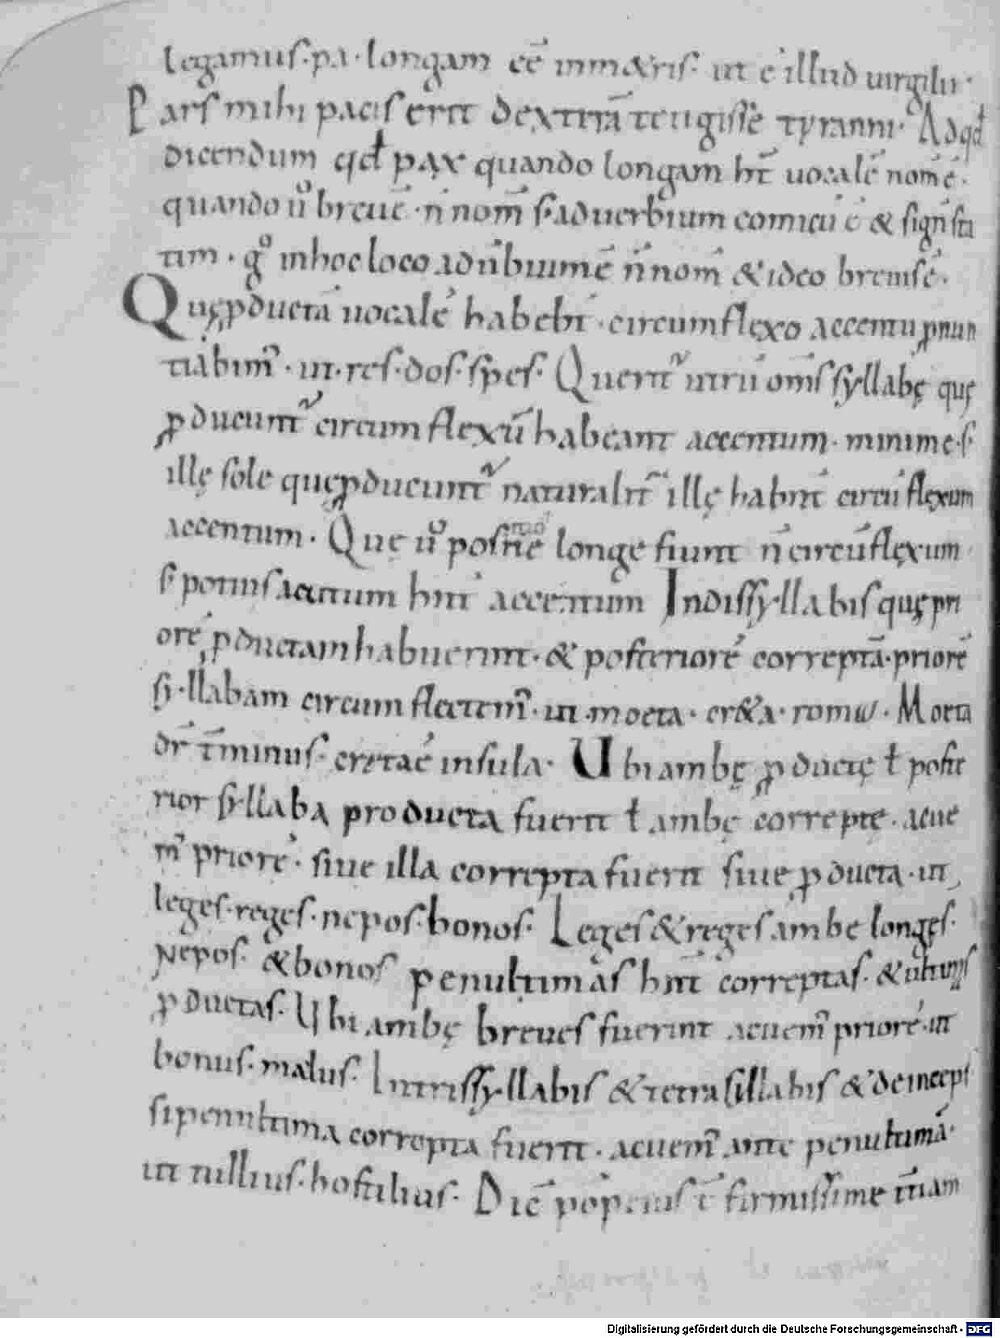 legamus · pa · longam ēē inmetris · ut ē illud uirgilii ·
Pars mihi pacis erit dextrā tetigisse tyranni · Adqđ
dicendum qđ pax quando longam ht̄ uocalē nomē ē ·
quando ū breuē · n̄ nom̄ s̄ aduerbium comicū ē & signi sta
tim · g° inhoc loco adūbiumē n̄ nom̄ & ideo breuisē ·
Quę ꝓductā uocalē habebt̄ · circumflexo accentu ꝓnun
tiabim̄ · ut · res · dos · spes · Querit utrū om̄s syllabę quę
ꝓducunt circumflexū habeant accentum · minime · s̄
illę sole quę ꝓducunt naturalit̄ illę habnt̄ circū flexum
accentum · Quę ū longe fiunt n̄ circūflexum ·
s̄ potius acutum hnt̄ accentum Indissyllabis quę pri
orē ꝓductam habuerint · & posteriorē correptā · priorē
syllabam circumflectem̄ · ut · moeta · creta · roma · Moeta
dr̄ t̄minus · cretaē insula · Ubi ambę ꝓductę ł poste
rior syllaba producta fuerit ł ambę correpte · acue
m̄ priorē · siue illa correpta fuerit siue ꝓducta · ut
leges · reges · nepos · bonos · Leges & reges ambe longęs ·
Nepos · & bonos penultimas hnt̄ correptas · & ultimas
ꝓductas · Ubi ambę breues fuerint acuem̄ priorē · ut
bonus · malus · Intrissyllabis & tetrasillabis & deinceps
si penultima correpta fuerit · acuem̄ ante penultimā ·
ut tullius · hostilius · firmissime
Digitalisierung gefördert durch die Deutsche Forschungsgemeinschaft - DFG